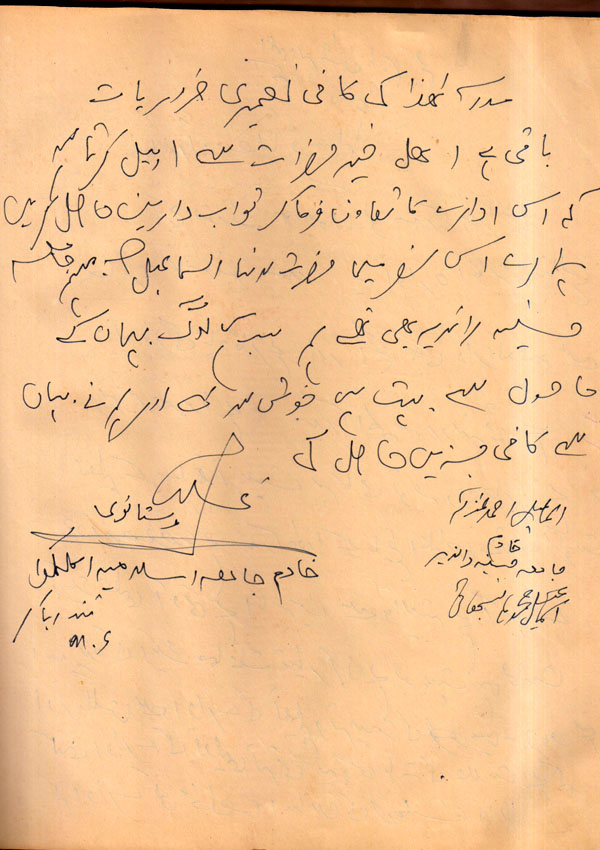 مدرسہ ھذا کی کافی تعمیری ضروریات
باقی ہے اھل خیر حضرات سے اپیل کرتا ہے
کہ اس ادارے کا تعاون فرماکر ثواب دارین حاصل کریں
ہمارے اس سفر میں حضرت مولانا اسماعیل صاحب مہتمم جامعہ
حسینیہ راندیر بھی تھے ہم سب ہی لوگ یہاں کے
ماحول سے بہت ہی خوش ہوئے اور ہم نے یہاں
سے کافی چیزیں حاصل کی
وستانوی
خادم جامعہ اسلامیہ اکل کوا
نندربار
M.S
اسماعیل احمد
خادم
جامعہ حسینیہ راندیر